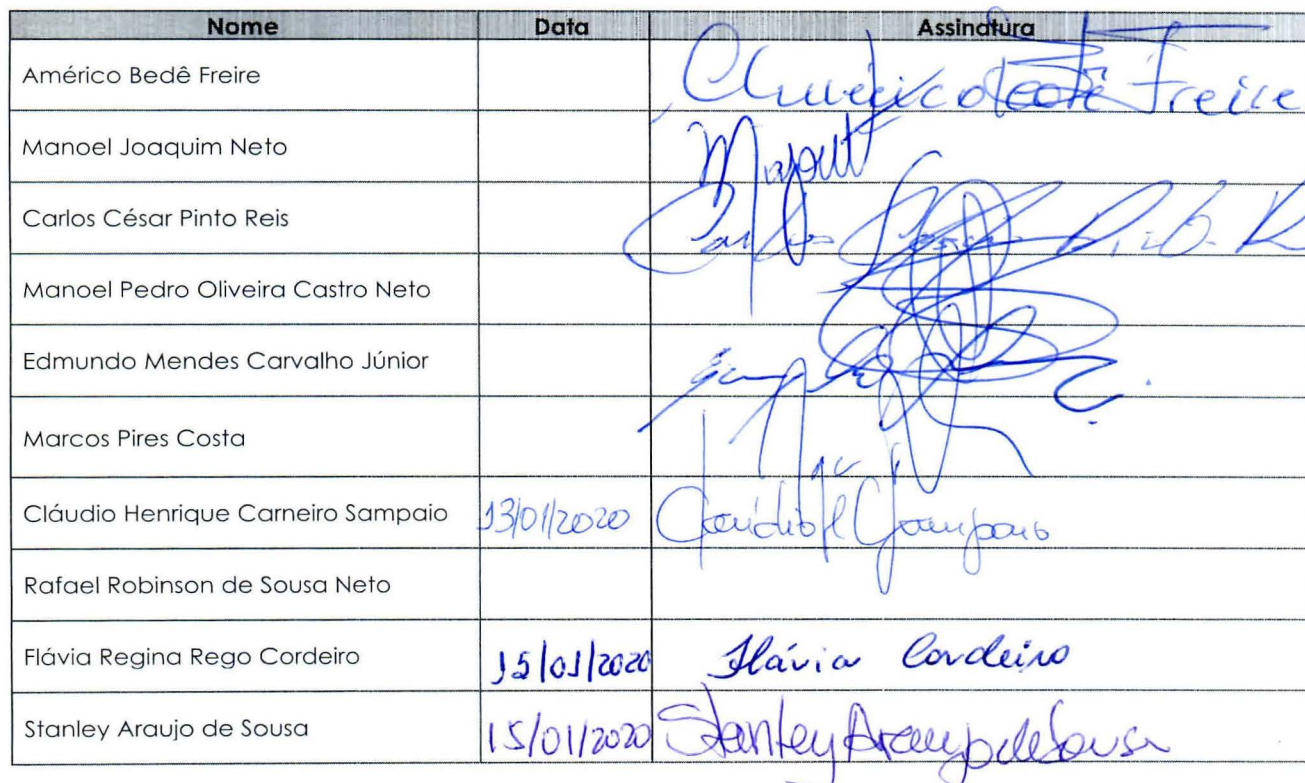 Nome Data Assinatura
Américo Bedê Freire Freire
Manoel Joaquim Neto
Carlos César Pinto Reis Carlos
Manoel Pedro Oliveira Castro Neto
Edmundo Mendes Carvalho Júnior
Marcos Pires Costa
Cláudio Henrique Carneiro Sampaio 13/01/2020
Rafael Robinson de Sousa Neto
Flávia Regina Rego Cordeiro 15/01/2020 Flávia Cordeiro
Stanley Araujo de Sousa 15/01/2020 Stanley Araujo de Sousa